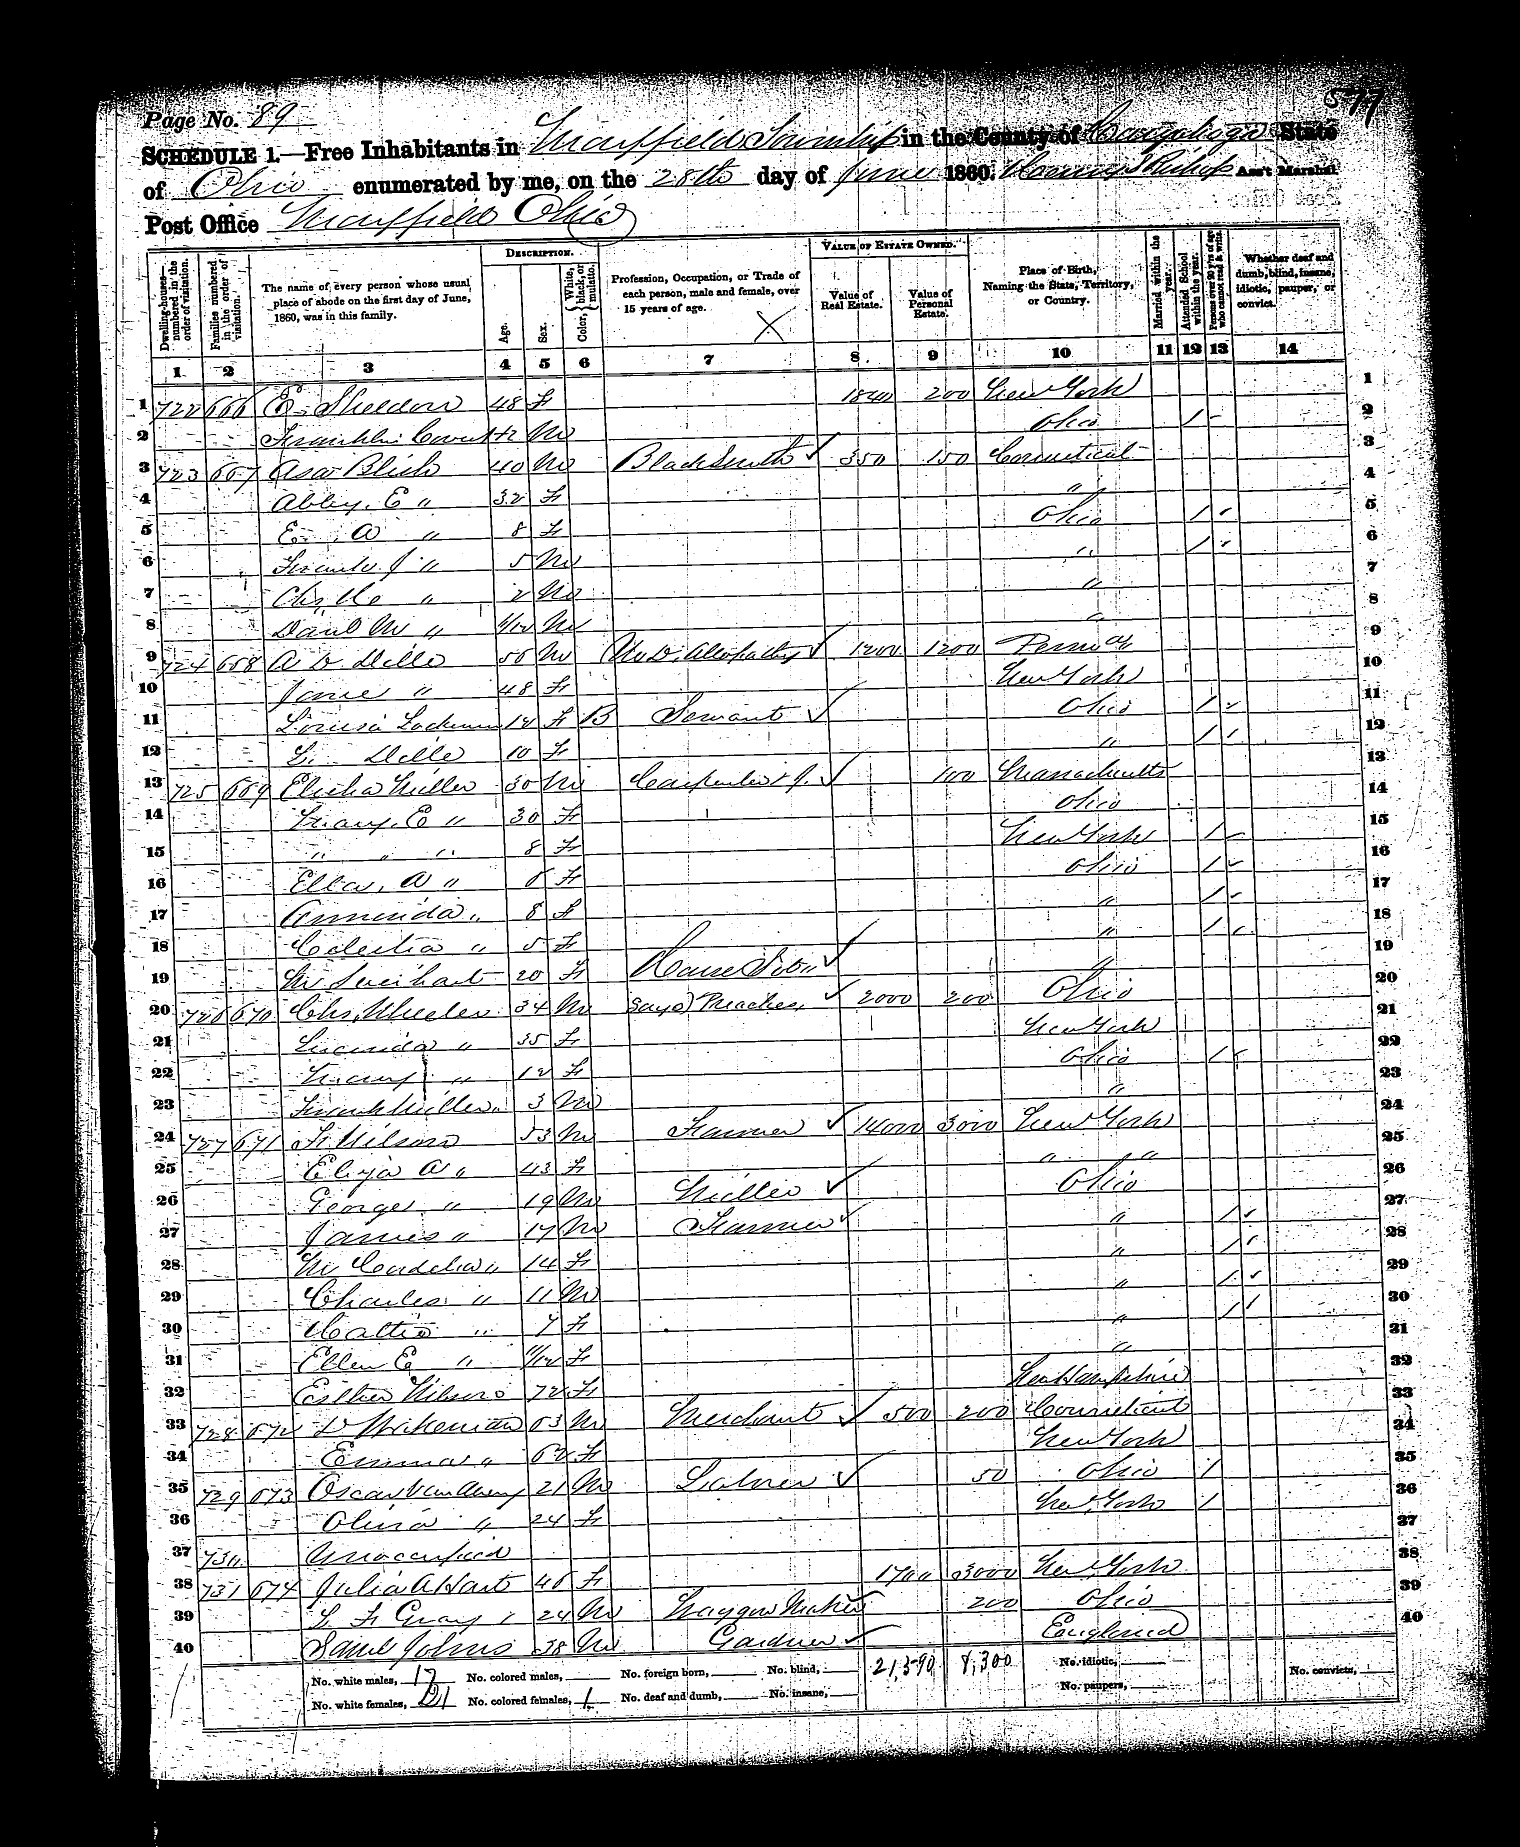 577
Page No. 89
SCHEDULE 1.—Free Inhabitants in Mayfield Township in the County of Cuyahoga State
of Ohio enumerated by me, on the 28th day of June 1860. Bishop Ass't Marshal.
Post Office Mayfield Ohio
Dwelling-houses—numbered in the order of visitation.
Families numbered in the order of visitation.
The name of every person whose usual place of abode on the first day of June, 1860, was in this family.
DESCRIPTION.
Age.
Sex.
Color, White, black, or mulatto.
Profession, Occupation, or Trade of each person, male and female, over 15 years of age.
VALUE OF ESTATE OWNED.
Value of Real Estate.
Value of Personal Estate.
Place of Birth, Naming the State, Territory, or Country.
Married within the year.
Attended School within the year.
Persons over 20 y'rs of age who cannot read & write.
Whether deaf and dumb, blind, insane, idiotic, pauper, or convict.
1 2 3 4 5 6 7 8 9 10 11 12 13 14
1 722 666 E Sheldon 48 F 1840 200 New York 1
2 Franklin M Ohio 1 2
3 723 667 Asa Blish 40 M Blacksmith 350 150 Connecticut 3
4 Abby. E " 32 F " " 4
5 E A " 8 F Ohio 1 5
6 Frank J " 5 M " 1 6
7 " 2 M " 7
8 M " M " 8
9 724 668 A D Dille 56 M M.D. Allopathy 1200 1200 Penn 9
10 Jane " 48 F New York 10
11 Louisa 12 F B Servant Ohio 1 11
12 L. Dille 10 F " 1 12
13 725 669 Elisha Miller 30 M Carpenter & J. 100 Massachusetts 13
14 Mary. E " 30 F Ohio 14
15 " " " 8 F New York 1 15
16 Ella. A " F Ohio 1 16
17 Arminda " 8 F " 1 17
18 Celestia " 5 F " 1 18
19 M Swihart 20 F " 19
20 726 670 Chs. Wheeler 34 M Says Preacher 2000 200 Ohio 20
21 Lucinda " 35 F New York 21
22 Mary " 12 F Ohio 1 22
23 Frank Miller " 3 M " 23
24 727 671 F Wilson 53 M Farmer 14000 3000 New York 24
25 Eliza A " 43 F " " 25
26 George " 19 M Miller Ohio 26
27 James " 17 M Farmer " 1 27
28 M Cordelia " 14 F " 1 28
29 Charles " 11 M " 1 29
30 Hattie " 7 F " 1 30
31 Ellen E " 11/12 F " 31
32 Esther Wilson 72 F New Hampshire 32
33 728 672 D Wakeman 63 M Merchant 500 200 Connecticut 33
34 Emma " 62 F New York 34
35 729 673 Oscar 21 M Laborer 50 Ohio 1 35
36 Olivia " 24 F New York 1 36
37 730 Unoccupied 37
38 731 674 Julia A Hart 46 F 1700 3000 New York 38
39 L F Gray 24 M Waggon Maker 200 Ohio 39
40 Saml Johns 38 M Gardner England 40
No. white males, 17 No. colored males, No. foreign born, No. blind, 21,390 8,300 No. idiotic, No. convicts,
No. white females, 21 No. colored females, 1 No. deaf and dumb, No. insane, No. paupers,